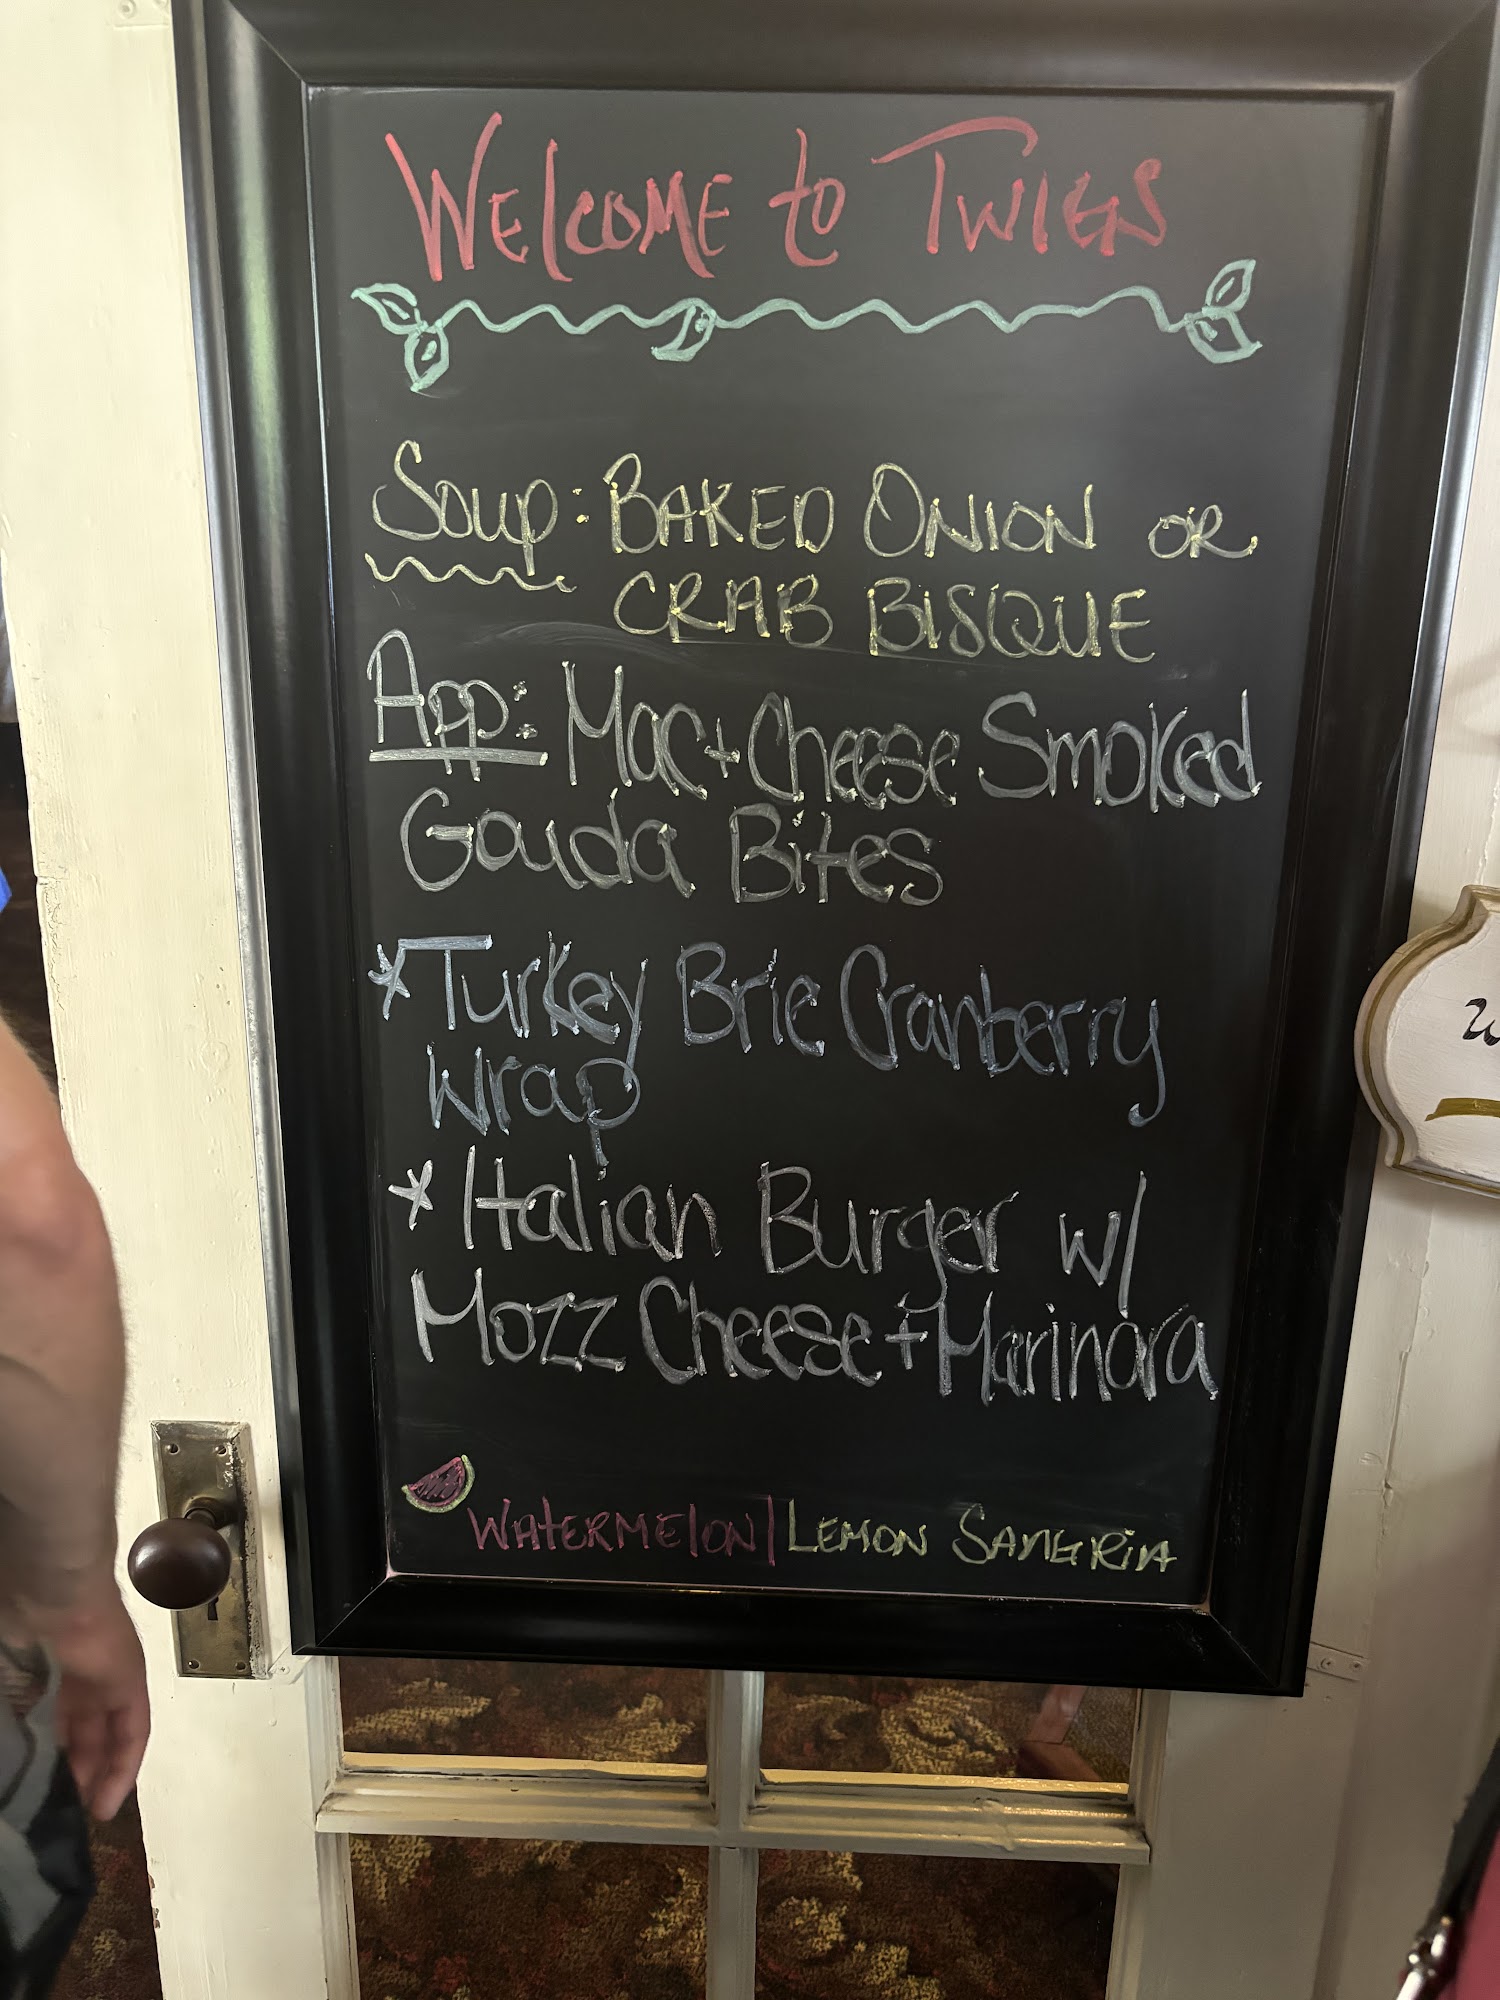 WELCOME to TWIGS
Soup: BAKED ONION OR
CRAB BISQUE
App: Mac + Cheese Smoked
Gouda Bites
* Turkey Brie Cranberry
Wrap
* Italian Burger w/
Mozz Cheese + Marinara
WATERMELON | LEMON SANGRIA